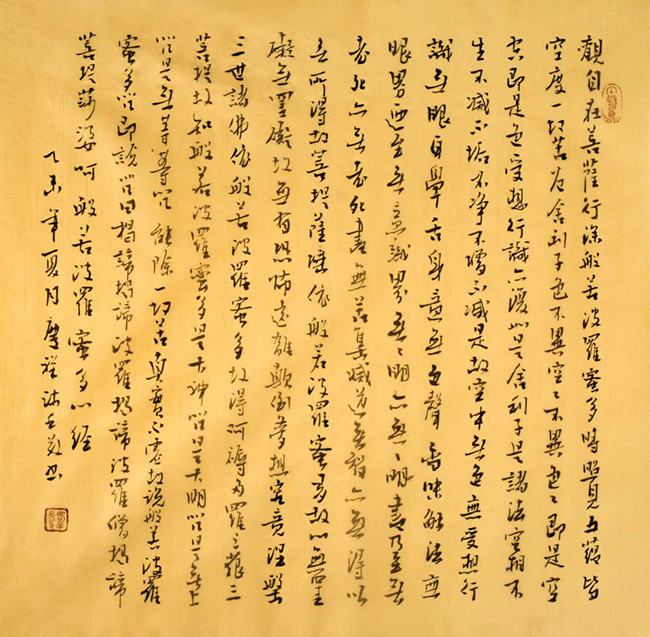 觀自在菩薩行深般若波羅蜜多時照見五蘊皆
空度一切苦厄舍利子色不異空々不異色々即是空
空即是色受想行識亦復如是舍利子是諸法空相不
生不滅不垢不淨不增不減是故空中無色無受想行
識無眼耳鼻舌身意無色聲香味觸法無
眼界迺至無意識界無々明亦無々明盡乃至無
老死亦無老死盡無苦集滅道無智亦無得以
無所得故菩提薩埵依般若波羅蜜多故心無罣
礙無罣礙故無有恐怖遠離顛倒夢想究竟涅槃
三世諸佛依般若波羅蜜多故得阿耨多羅三藐三
菩提故知般若波羅蜜多是大神咒是大明咒是無上
咒是無等等咒能除一切苦真實不虛故說般若波羅
蜜多咒即說咒曰揭諦揭諦波羅揭諦波羅僧揭諦
菩提莎婆呵般若波羅蜜多心經
乙未年夏月